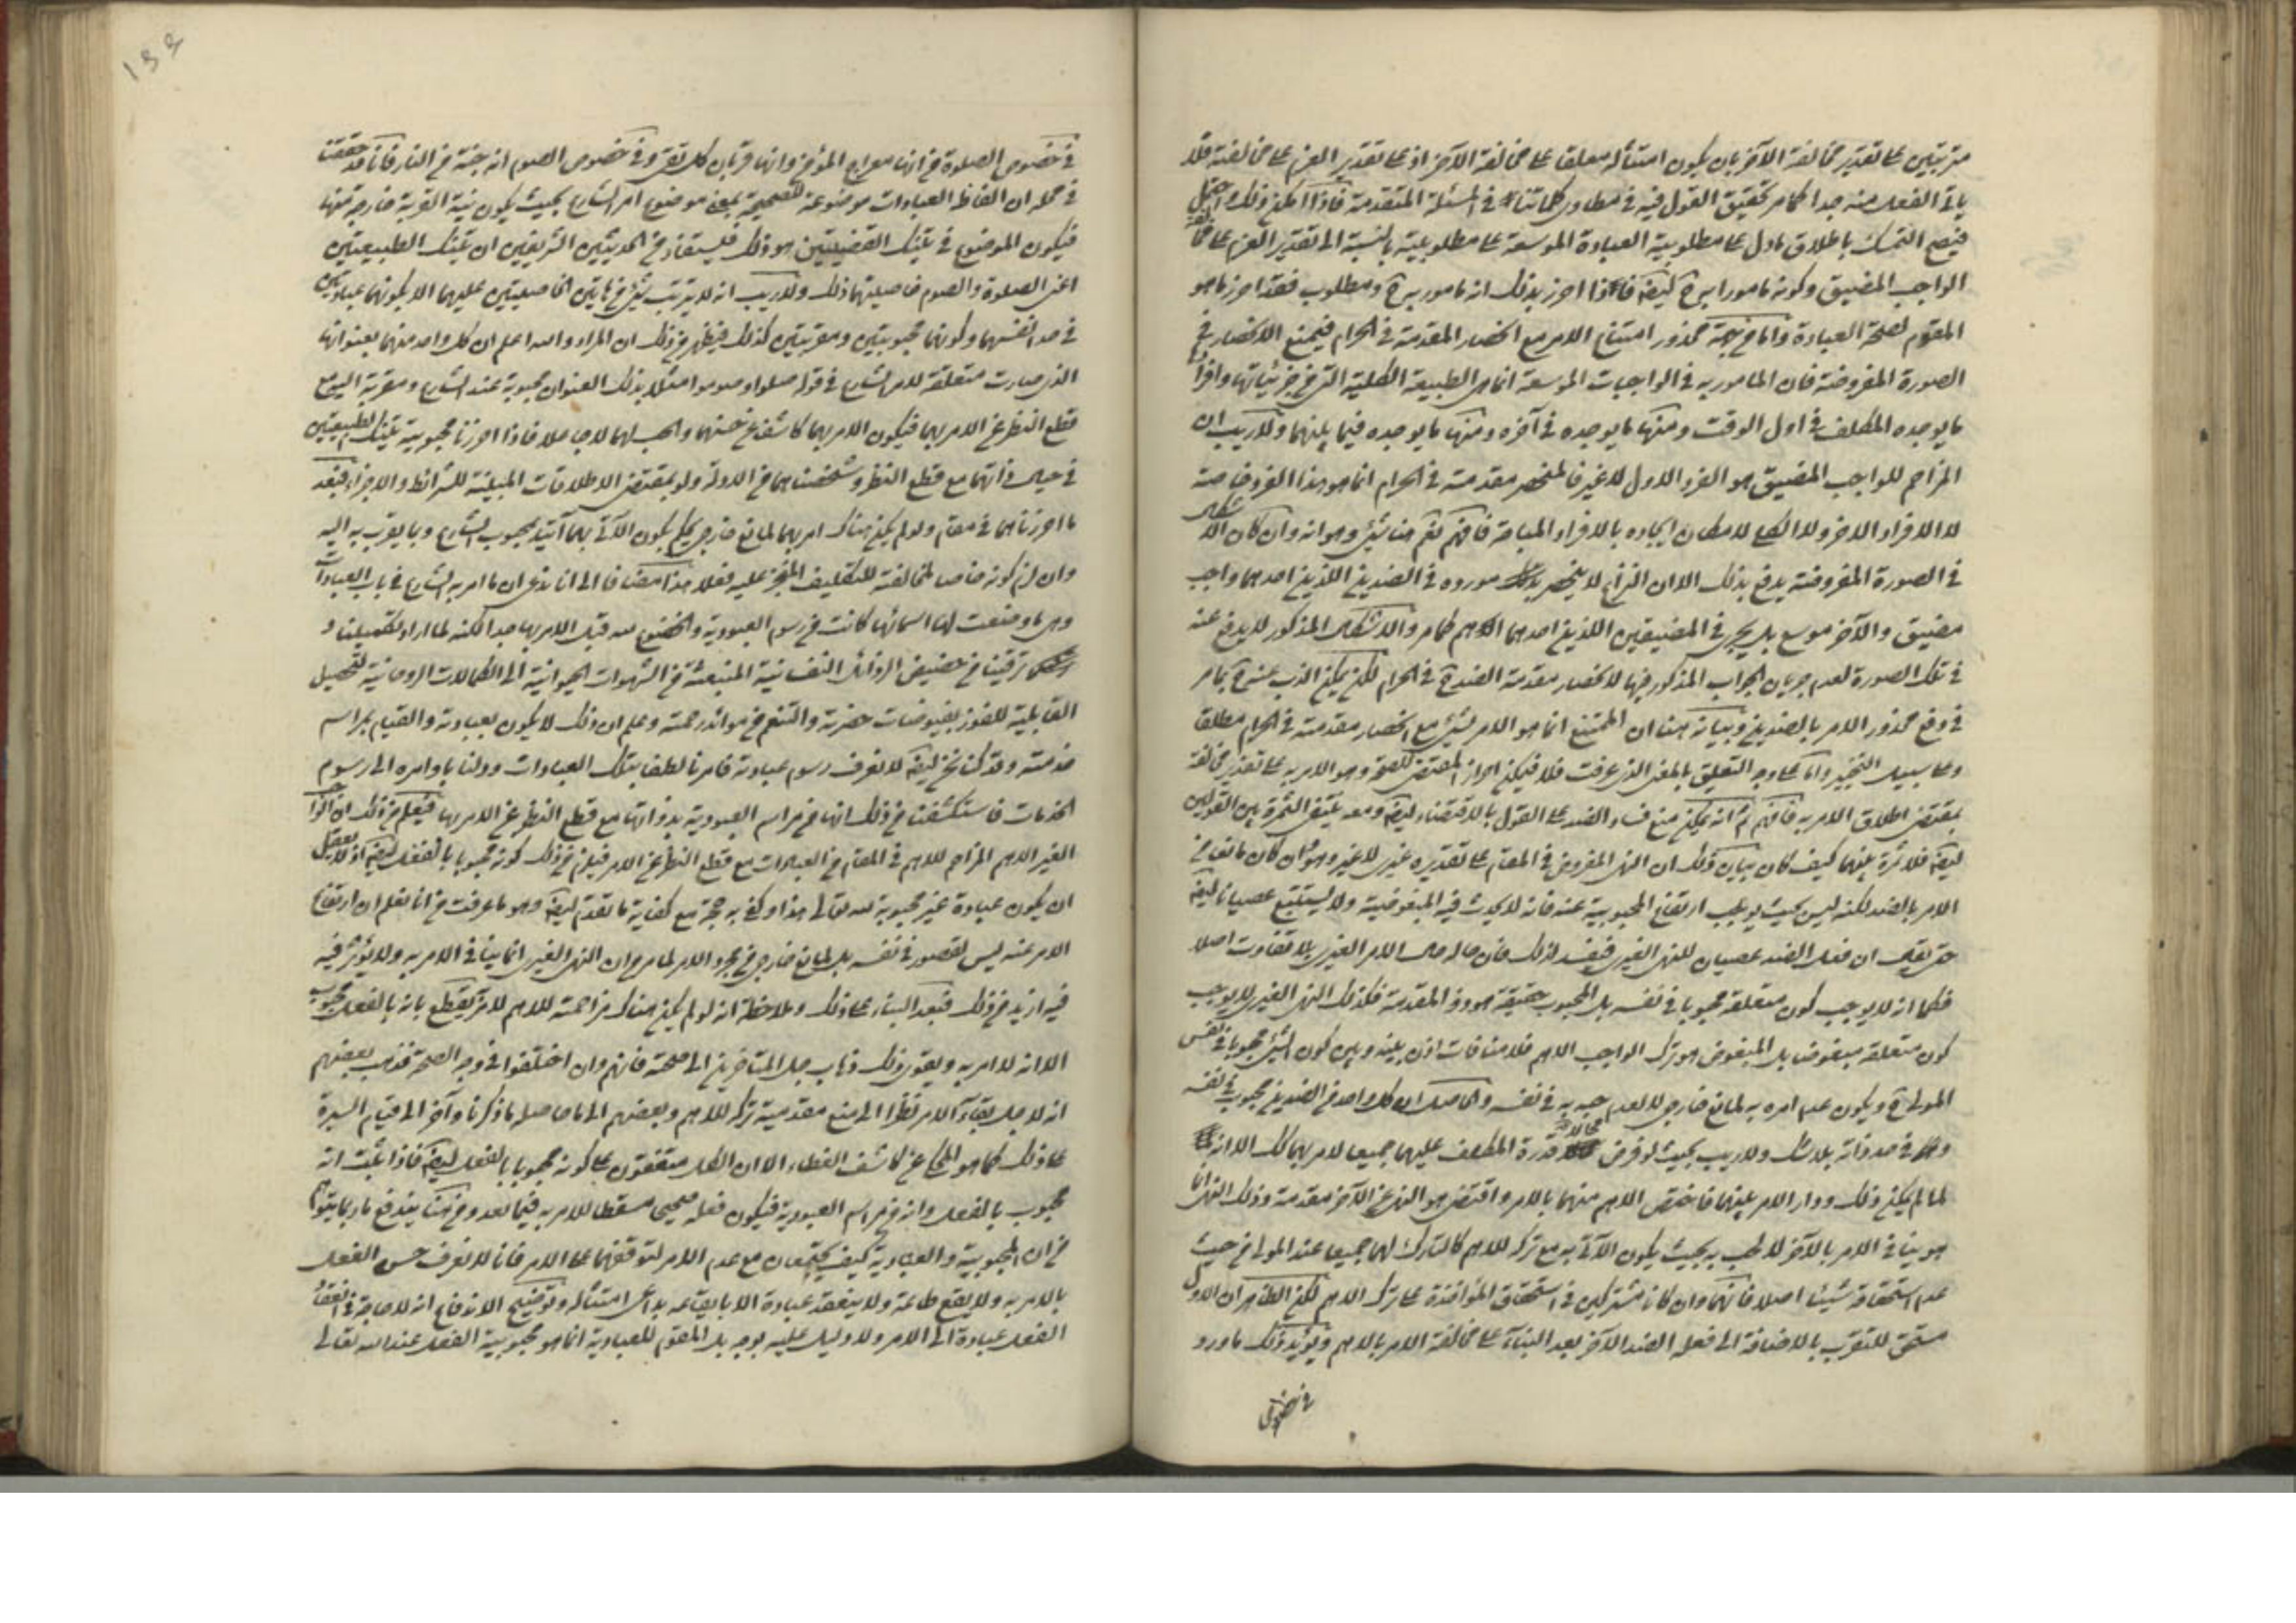 مترتبتين على تقدير مخالفة الآخر بان يكون امتثاله معلقا على مخالفة الآخر اذ على تقدير العزم على مخالفته فلا
يأبى الفعل منه جدا كما مر تحقيق القول فيه في مطاوى كلماتنا في المسئلة المتقدمة فاذا امكن ذلك
فيصح التمسك باطلاق ما دل على مطلوبية العبادة الموسعة على مطلوبيته بالنسبة الى تقدير العزم على
الواجب المضيق وكونه مامورا به ح ايضا فاذا احرز بذلك انه مامور به ح ومطلوب فقد احرز ما هو
المقوم لصحة العبادة واما من جهة محذور امتناع الامر مع انحصار المقدمة في الحرام فيمنع الانحصار في
الصورة المفروضة فان المامور به في الواجبات الموسعة انما هى الطبيعة الكلية التى من جزئياتها وافرادها
ما يوجده المكلف في اول الوقت ومنها ما يوجده في آخره ومنها ما يوجده فيما بينهما ولا ريب ان
المزاحم للواجب المضيق هو الفرد الاول لا غير فالمنحصر مقدمته في الحرام انما هو هذا الفرد خاصة
لا الافراد الاخر ولا الكلى لامكان ايجاده بالافراد المباحة فافهم نعم هنا شيئ وهو انه وان كان الاشكال
في الصورة المفروضة يدفع بذلك الا ان النزاع لا ينحصر مورده في الضدين اللذين احدهما واجب
مضيق والآخر موسع بل يجرى في المضيقين اللذين احدهما اهم كما مر والاشكال المذكور لا يدفع عنه
في تلك الصورة لعدم جريان الجواب المذكور فيها لانحصار مقدمة الضد ح في الحرام لكن يمكن الذب عنه ح بما مر
في دفع محذور الامر بالضدين وبيانه هنا ان الممتنع انما هو الامر بشيئ مع انحصار مقدمته في الحرام مطلقا
وعلى سبيل التنجيز واما على وجه التعليق بالمعنى الذى عرفت فلا فيمكن احراز المقتضى للصحة وهو الامر به على تقدير مخالفة
بمقتضى اطلاق الامر به فافهم ثم انه يمكن منع فساد الضد على القول بالاقتضاء ايضا ومعه ينتفى الثمرة بين القولين
ايضا فلا ثمرة بينهما كيف كان بيان ذلك ان النهى المفروض في المقام على تقديره غيرى لا غير وهو وان كان مانعا من
الامر بالضد لكنه ليس بحيث يوجب ارتفاع المحبوبية عنه فانه لا يحدث فيه المبغوضية ولا يستتبع عصيانا ايضا
حتى يقال ان فعل الضد عصيان للنهى الغيرى فيفسد لذلك فان حاله حال الامر الغيرى بلا تفاوت اصلا
فكما انه لا يوجب كون متعلقه محبوبا في نفسه بل المحبوب حقيقة هو ذو المقدمة فكذلك النهى الغيرى لا يوجب
كون متعلقه مبغوضا بل المبغوض هو ترك الواجب الاهم فلا منافات اذن بينه وبين كون الشيئ محبوبا في نفس
المولى ح ويكون عدم امره به لمانع خارجى لا لعدم حبه به في نفسه والحاصل ان كل واحد من الضدين محبوب في نفسه
في حد ذاته بلا شك ولا ريب بحيث لو فرض محالا قدرة المكلف عليهما جميعا لامر بهما كك الا انه
لما لم يكن ذلك ودار الامر بينهما فاختص الاهم منهما بالامر واقتضى هو النهى عن الآخر مقدمة وذلك النهى انما
هو ينافى الامر بالآخر لا طلبه بحيث يكون الآتى به مع تركه للاهم كالتارك لهما جميعا عند المولى من حيث
عدم استحقاقه شيئا اصلا فانهما وان كانا مشتركين في استحقاق المؤاخذة على ترك الاهم لكن الظاهر ان الاول
مستحق للتقرب بالاضافة الى فعله الضد الآخر بعد البناء على مخالفة الامر بالاهم ويؤيد ذلك ما ورد
في خصوص
١٣٣
في خصوص الصلوة من انها معراج المؤمن وانها قربان كل تقى وفي خصوص الصوم انه جنة من النار فانا قد حققنا
في محله ان الفاظ العبادات موضوعة للصحيحة بمعنى موضوع امر الشارع بحيث يكون نية القربة خارجة عنها
فيكون الموضوع في تينك القضيتين هو ذلك فيستفاد من الحديثين الشريفين ان تينك الطبيعتين
اعنى الصلوة والصوم خاصيتهما ذلك ولا ريب انه لا يترتب شيئ من هاتين الخاصيتين عليهما الا بكونهما عبادتين
في حد انفسهما وكونهما محبوبتين ومقربتين كذلك فيظهر من ذلك ان المراد والله اعلم ان كل واحد منهما بعنوانها
الذى صارت متعلقة لامر الشارع في قوله صلوا وصوموا مثلا بذلك العنوان محبوبة عند الشارع ومقربة اليه مع
قطع النظر عن الامر بهما فيكون الامر بهما كاشفا عن حسنهما والحب لهما لا جاعلا فاذا احرزنا محبوبية تينك الطبيعتين
في حيال ذاتهما مع قطع النظر وشخصناهما من الادلة ولو بمقتضى الاطلاقات المبينة للشرائط والاجزاء فبعد
ما احرزناهما في مقام ولو لم يكن هناك امر بهما لمانع خارجى يحكم بكون الآتى بهما آتيا بمحبوب الشارع وبما يقرب به اليه
وان لزم كونه عاصيا لمخالفة للتكليف المنجز عليه فعلا هذا مضافا الى انا ندعى ان ما امر به الشارع في باب العبادات
وهى ما وضعت لها اسمائها كانت من رسوم العبودية والخضوع لله قبل الامر بها جدا لكنه لما اراد تكميلنا و
ترقينا من حضيض الرذائل النفسانية المنبعثة من الشهوات الحيوانية الى الكمالات الروحانية لتحصيل
القابلية للفوز بفيوضات حضرته والتنعم من موائد رحمته وعلم ان ذلك لا يكون بعبادته والقيام بمراسم
خدمته وقد كنا نحن ايضا لا نعرف رسوم عبادته فامرنا لطفا بتلك العبادات ودلنا باوامره الى رسوم
الخدمات فاستكشفنا من ذلك انها من مراسم العبودية بذواتها مع قطع النظر عن الامر بها فيعلم من ذلك ان الواجب
الغير الاهم المزاحم للاهم في المقام من العبادات مع قطع النظر عن الامر فيلزم من ذلك كونه محبوبا بالفعل ايضا اذ لا يعقل
ان يكون عبادة غير محبوبة لله تعالى هذا وكفى به حجة مع كفاية ما تقدم ايضا وهو ما عرفت من انا نعلم ان ارتفاع
الامر عنه ليس لقصور في نفسه بل لمانع خارجى من مجرد الامر لما مر ان النهى الغيرى انما ينافى الامر به ولا يؤثر فيه
فيه ازيد من ذلك فبعد البناء على ذلك وملاحظة انه لو لم يكن هناك مزاحمة للاهم لامر به يقطع بانه بالفعل محبوب
الا انه لا امر به ويقوى ذلك ذهاب جل المتاخرين الى صحته فانهم وان اختلفوا في وجه الصحة فذهب بعضهم
انه لاجل بقاء الامر نظرا الى منع مقدمية تركه للاهم وبعضهم الى ما حاصله ما ذكرنا وآخر الى قيام السيرة
على ذلك كما هو المحكى عن كاشف الغطاء الا ان الكل متفقون على كونه محبوبا بالفعل ايضا فاذا ثبت انه
محبوب بالفعل وانه من مراسم العبودية فيكون فعله صحيحا مسقطا للامر به فيما بعد ومن هنا يندفع ما ربما يتوهم
من ان المحبوبية والعبادية كيف يجتمعان مع عدم الامر لتوقفهما على الامر فانا لا نعرف حسن الفعل
بالامر به ولا يقع طاعة ولا ينعقد عبادة الا بايقاعه بداعى امتثاله وتوضيح الاندفاع انه لا حاجة في انعقاد
الفعل عبادة الى الامر ولا دليل عليه بوجه بل المقوم للعبادية انما هو محبوبية الفعل عند الله تعالى